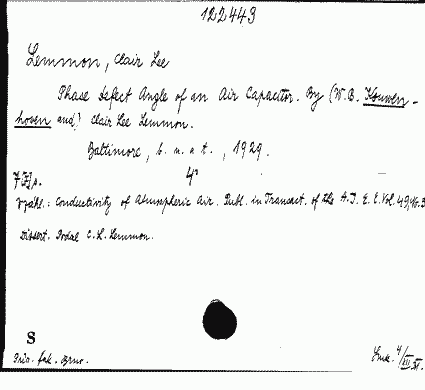 122443
Lemmon, Clair Lee
Phase Defect Angle of an Air Capacitor. By (W. B. Kouwen-
hoven and) Clair Lee Lemmon.
Baltimore, b. n. t., 1929.
7 [8] s. 4°
Zvl.: Conductivity of Atmospheric Air. Publ. in Transact. of the A. I. E. E. Vol. 49, No. 3
Dissert. Podal C. L. Lemmon.
S
Přír. fak. Brno.
4/III